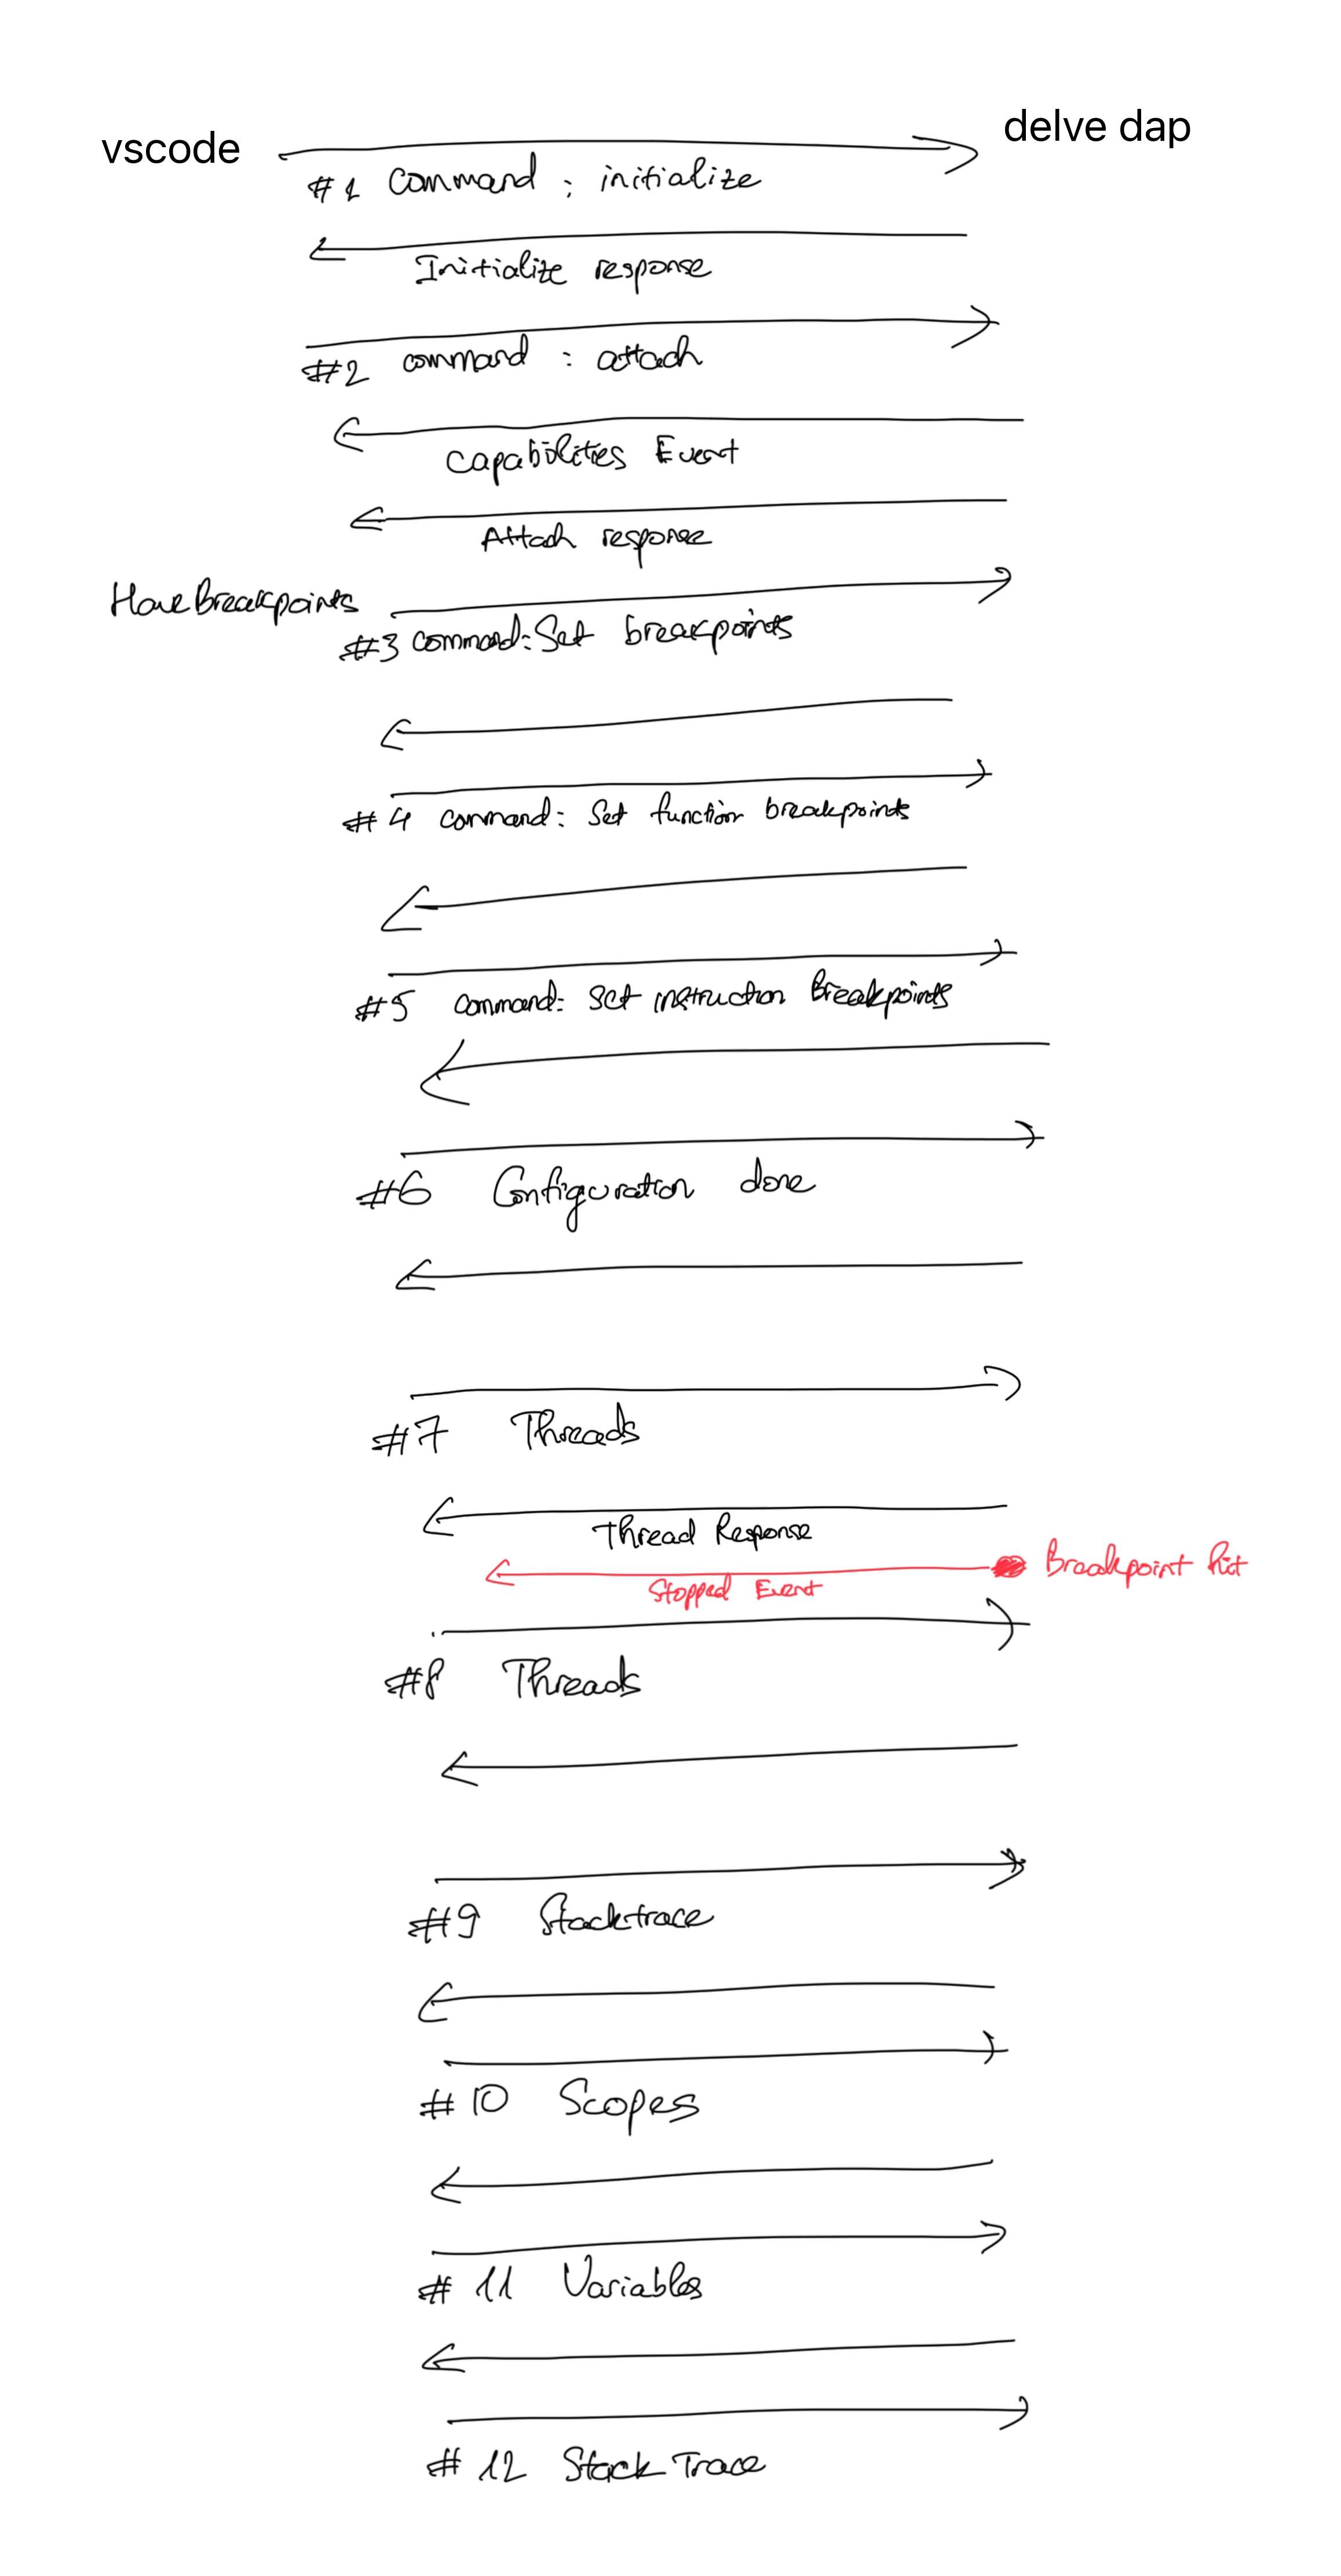 vscode
delve dap
#1 Command : initialize
Initialize response
#2 command : attach
Capabilities Event
Attach response
Have Breakpoints
#3 command: Set breakpoints
#4 command: Set function breakpoints
#5 command: Set instruction Breakpoints
#6 Configuration done
#7 Threads
Thread Response
Breakpoint hit
Stopped Event
#8 Threads
#9 Stacktrace
#10 Scopes
#11 Variables
#12 Stack Trace